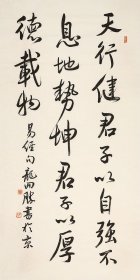 天行健君子以自強不
息地勢坤君子以厚
德載物
易經句龍田勝書於京